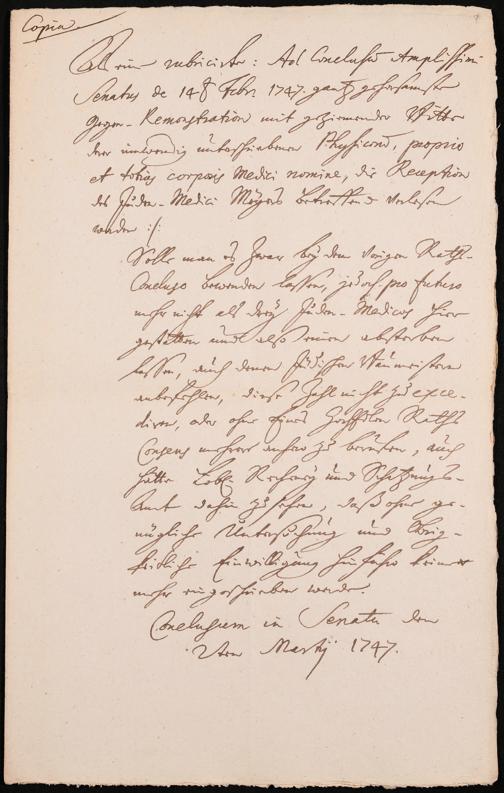 Copia
Als eine rubricirte: Ad Conclusum Amplissimi
Senatus de 14t Febr. 1747. gantz gehorsamste
Gegen-Remonstration mit geziemender Bitte
derer inwendig unterschriebenen Physicorum, proprio
et totius corporis Medici nomine, die Reception
des Juden-Medici Mayers betreffend verlesen
worden :/:
Solle man es zwar bey dem vorigen Rath-
Concluso bewenden lassen, jedoch pro futuro
mehr nicht als drey Juden-Medicos hier
gestatten und also einen absterben
lassen, auch denen Jüdischen Baumeistern
anbefohlen, diese Zahl nicht zu exce-
diren, oder ohne Eines HochEdlen Raths
Consens mehrere anhero zu beruffen, auch
hätte Löbl. Rechney und Schatzungs-
Amt dahin zu sehen, daß ohne ge-
nügliche Untersuchung und Obrig-
keitliche Einwilligung hinführo keiner
mehr eingeschrieben werde.
Conclusum in Senatu den
2ten Martij 1747.